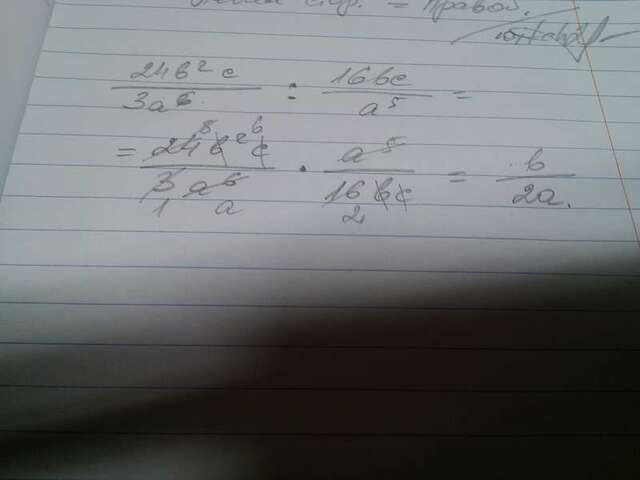 = правой.
24b²c / 3a⁶ : 16bc / a⁵ =
= 24b²c / 3a⁶ · a⁵ / 16bc = b / 2a.